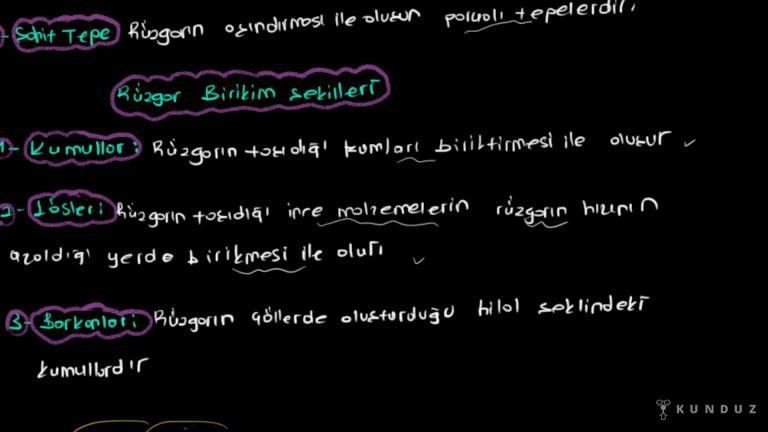 - Şahit Tepe Rüzgarın aşındırması ile oluşan parçalı tepelerdir.
Rüzgar Birikim şekilleri
1- Kumullar: Rüzgarın taşıdığı kumları biriktirmesi ile oluşur
2- Lösler: Rüzgarın taşıdığı ince malzemelerin rüzgarın hızının
azaldığı yerde birikmesi ile olur
3- Barkanlar: Rüzgarın çöllerde oluşturduğu hilal şeklindeki
kumullardır
KUNDUZ